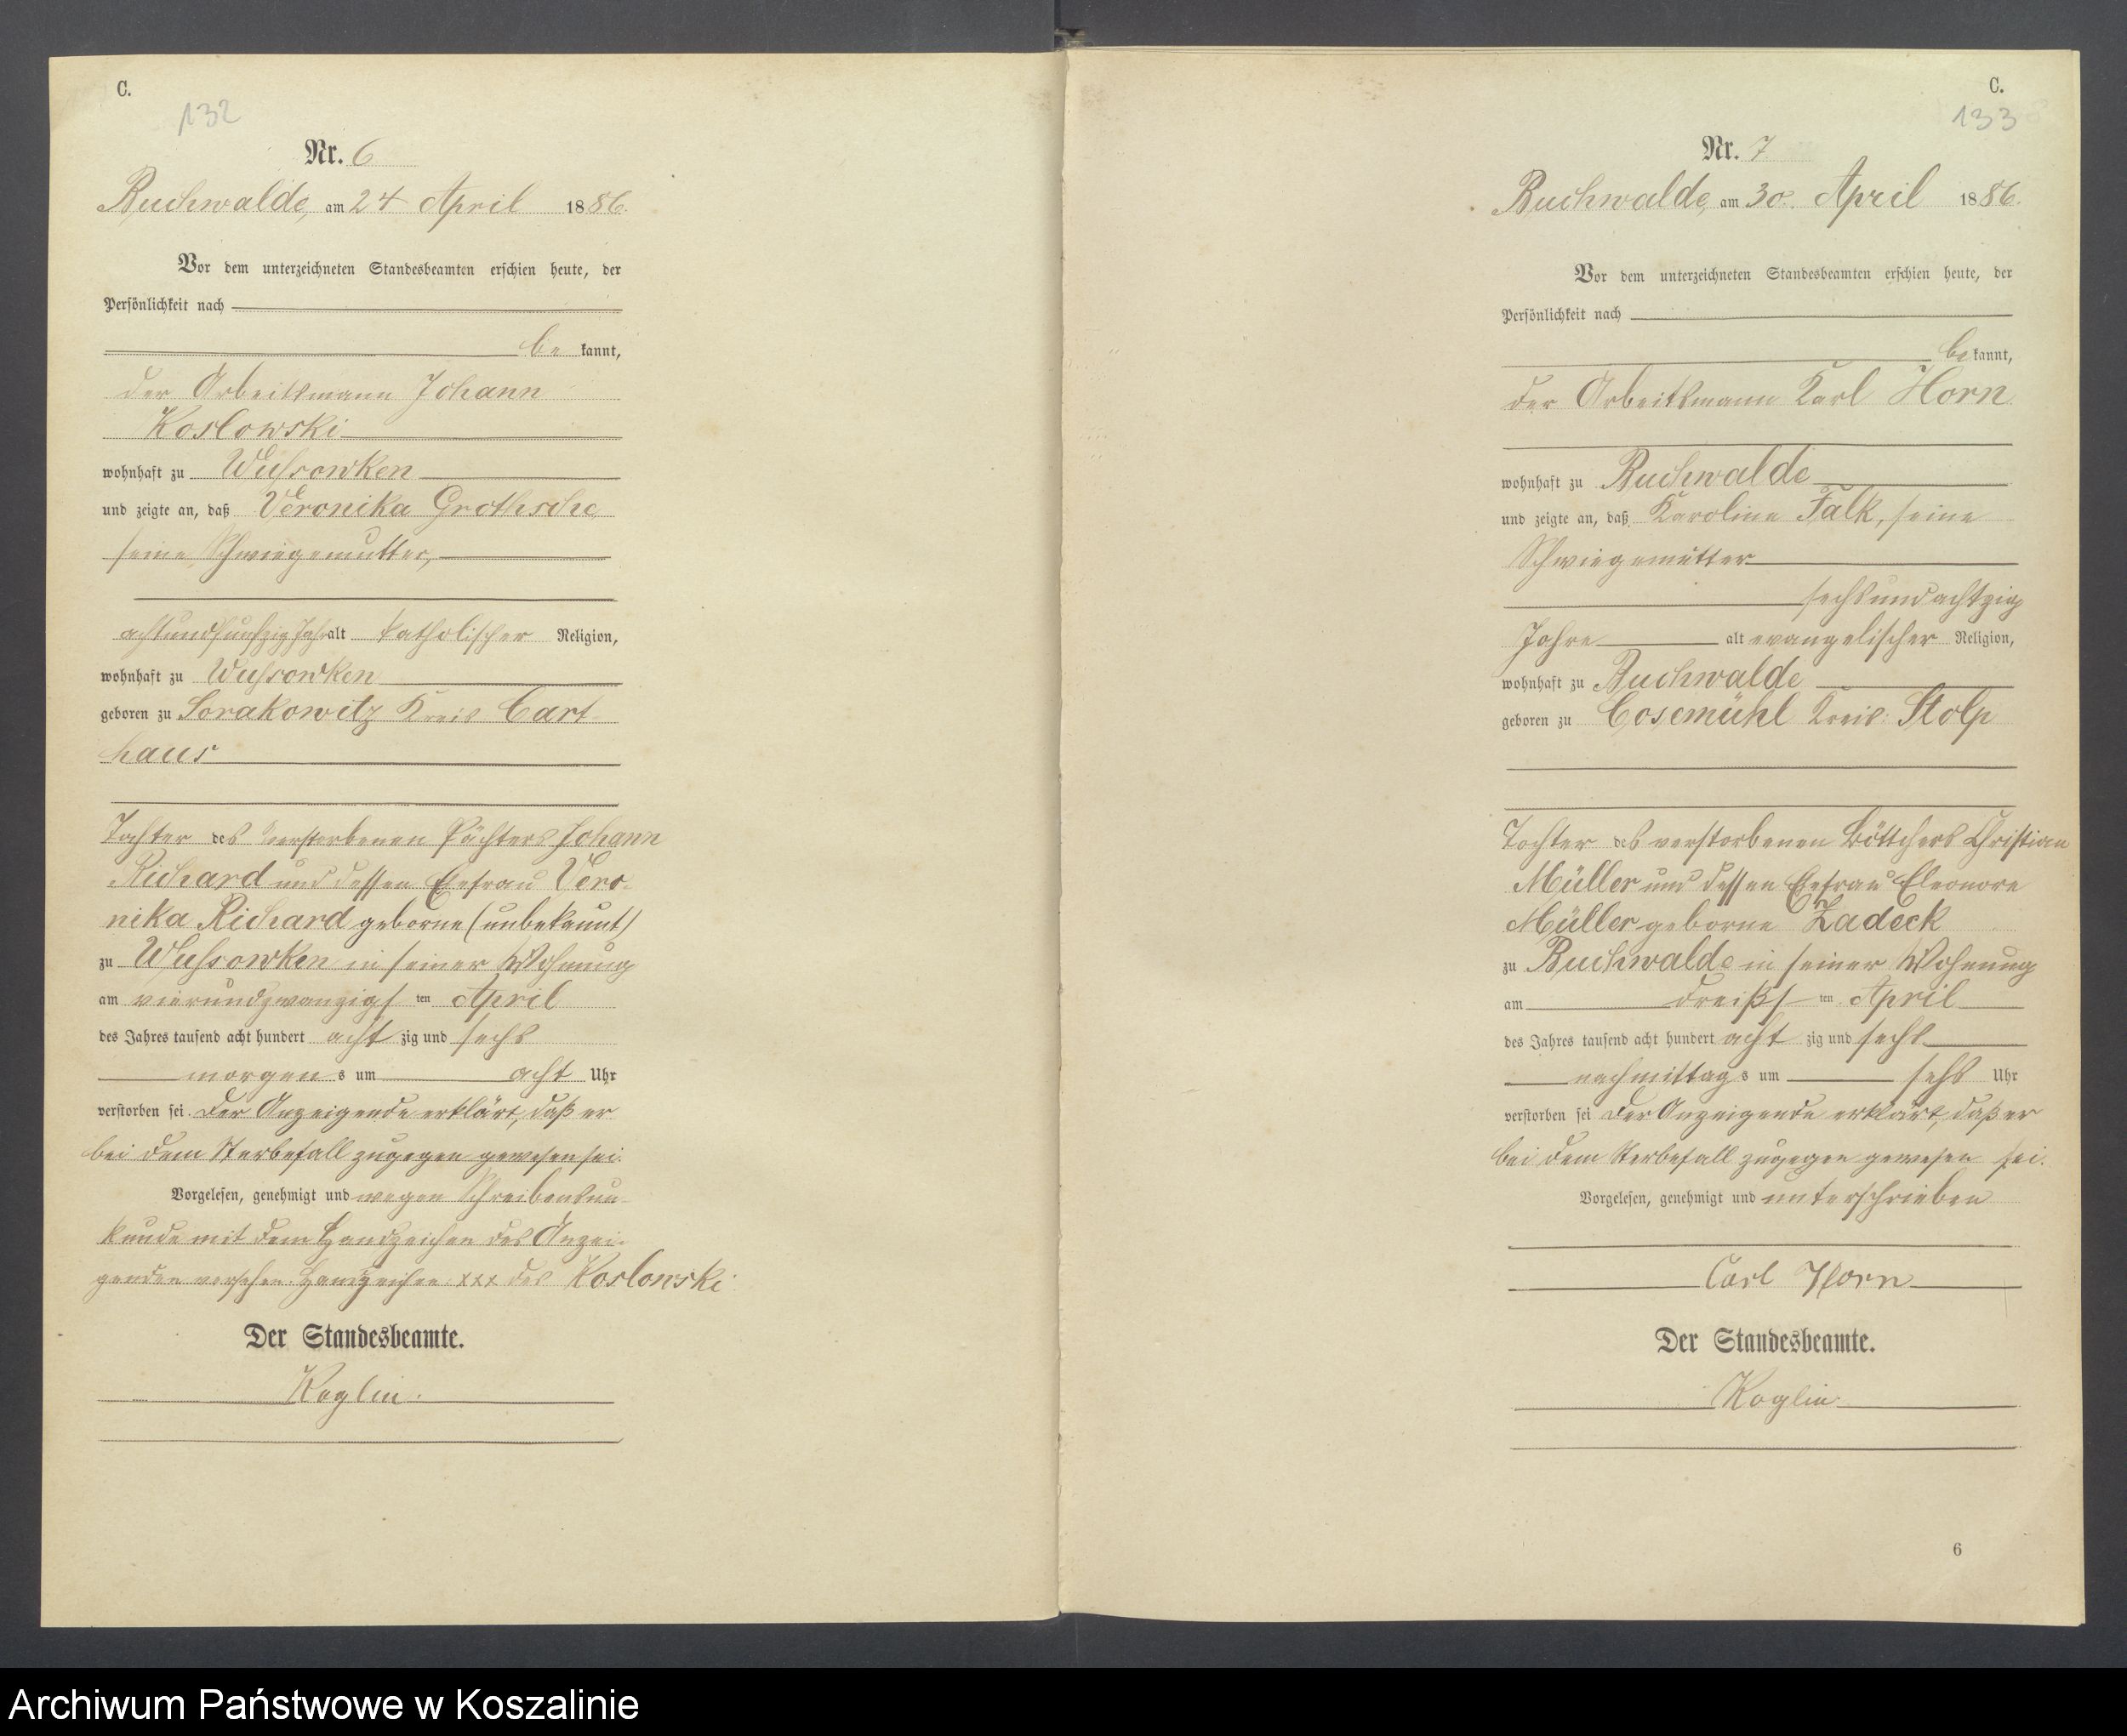 C.
132
Nr. 6
Buchwalde, am 24 April 1886.
Vor dem unterzeichneten Standesbeamten erschien heute, der
Persönlichkeit nach
be kannt,
der Arbeitsmann Johann
Koslowski
wohnhaft zu Wussowken
und zeigte an, daß Veronika Grothsche
seine Schwiegemutter,
achtundfunfzig Jahr alt katholischer Religion,
wohnhaft zu Wussowken
geboren zu Sorakowitz Kreis Cart-
haus
Tochter des verstorbenen Pächters Johann
Richard und dessen Ehefrau Vero-
nika Richard geborne (unbekannt)
zu Wussowken in seiner Wohnung
am vierundzwanzigs ten April
des Jahres tausend acht hundert acht zig und sechs
morgen s um acht Uhr
verstorben sei Der Anzeigende erklärt, daß er
bei dem Sterbefall zugegen gewesen sei.
Vorgelesen, genehmigt und wegen Schreibensun-
kunde mit dem Handzeichen des Anzei-
genden versehen. Handzeichen xxx des Koslowski
Der Standesbeamte.
Koglin.
C.
133
Nr. 7
Buchwalde, am 30. April 1886.
Vor dem unterzeichneten Standesbeamten erschien heute, der
Persönlichkeit nach
be kannt,
der Arbeitsmann Karl Horn
wohnhaft zu Buchwalde
und zeigte an, daß Karoline Falk, seine
Schwiegemutter
sechsundachtzig
Jahre alt evangelischer Religion,
wohnhaft zu Buchwalde
geboren zu Cosemühl Kreis: Stolp
Tochter des verstorbenen Böttchers Christian
Müller und dessen Ehefrau Eleonore
Müller geborne Zadeck
zu Buchwalde in seiner Wohnung
am dreißs ten April
des Jahres tausend acht hundert acht zig und sechs
nachmittag s um sechs Uhr
verstorben sei Der Anzeigende erklärt, daß er
bei dem Sterbefall zugegen gewesen sei.
Vorgelesen, genehmigt und unterschrieben
Carl Horn
Der Standesbeamte.
Koglin.
6
Archiwum Państwowe w Koszalinie